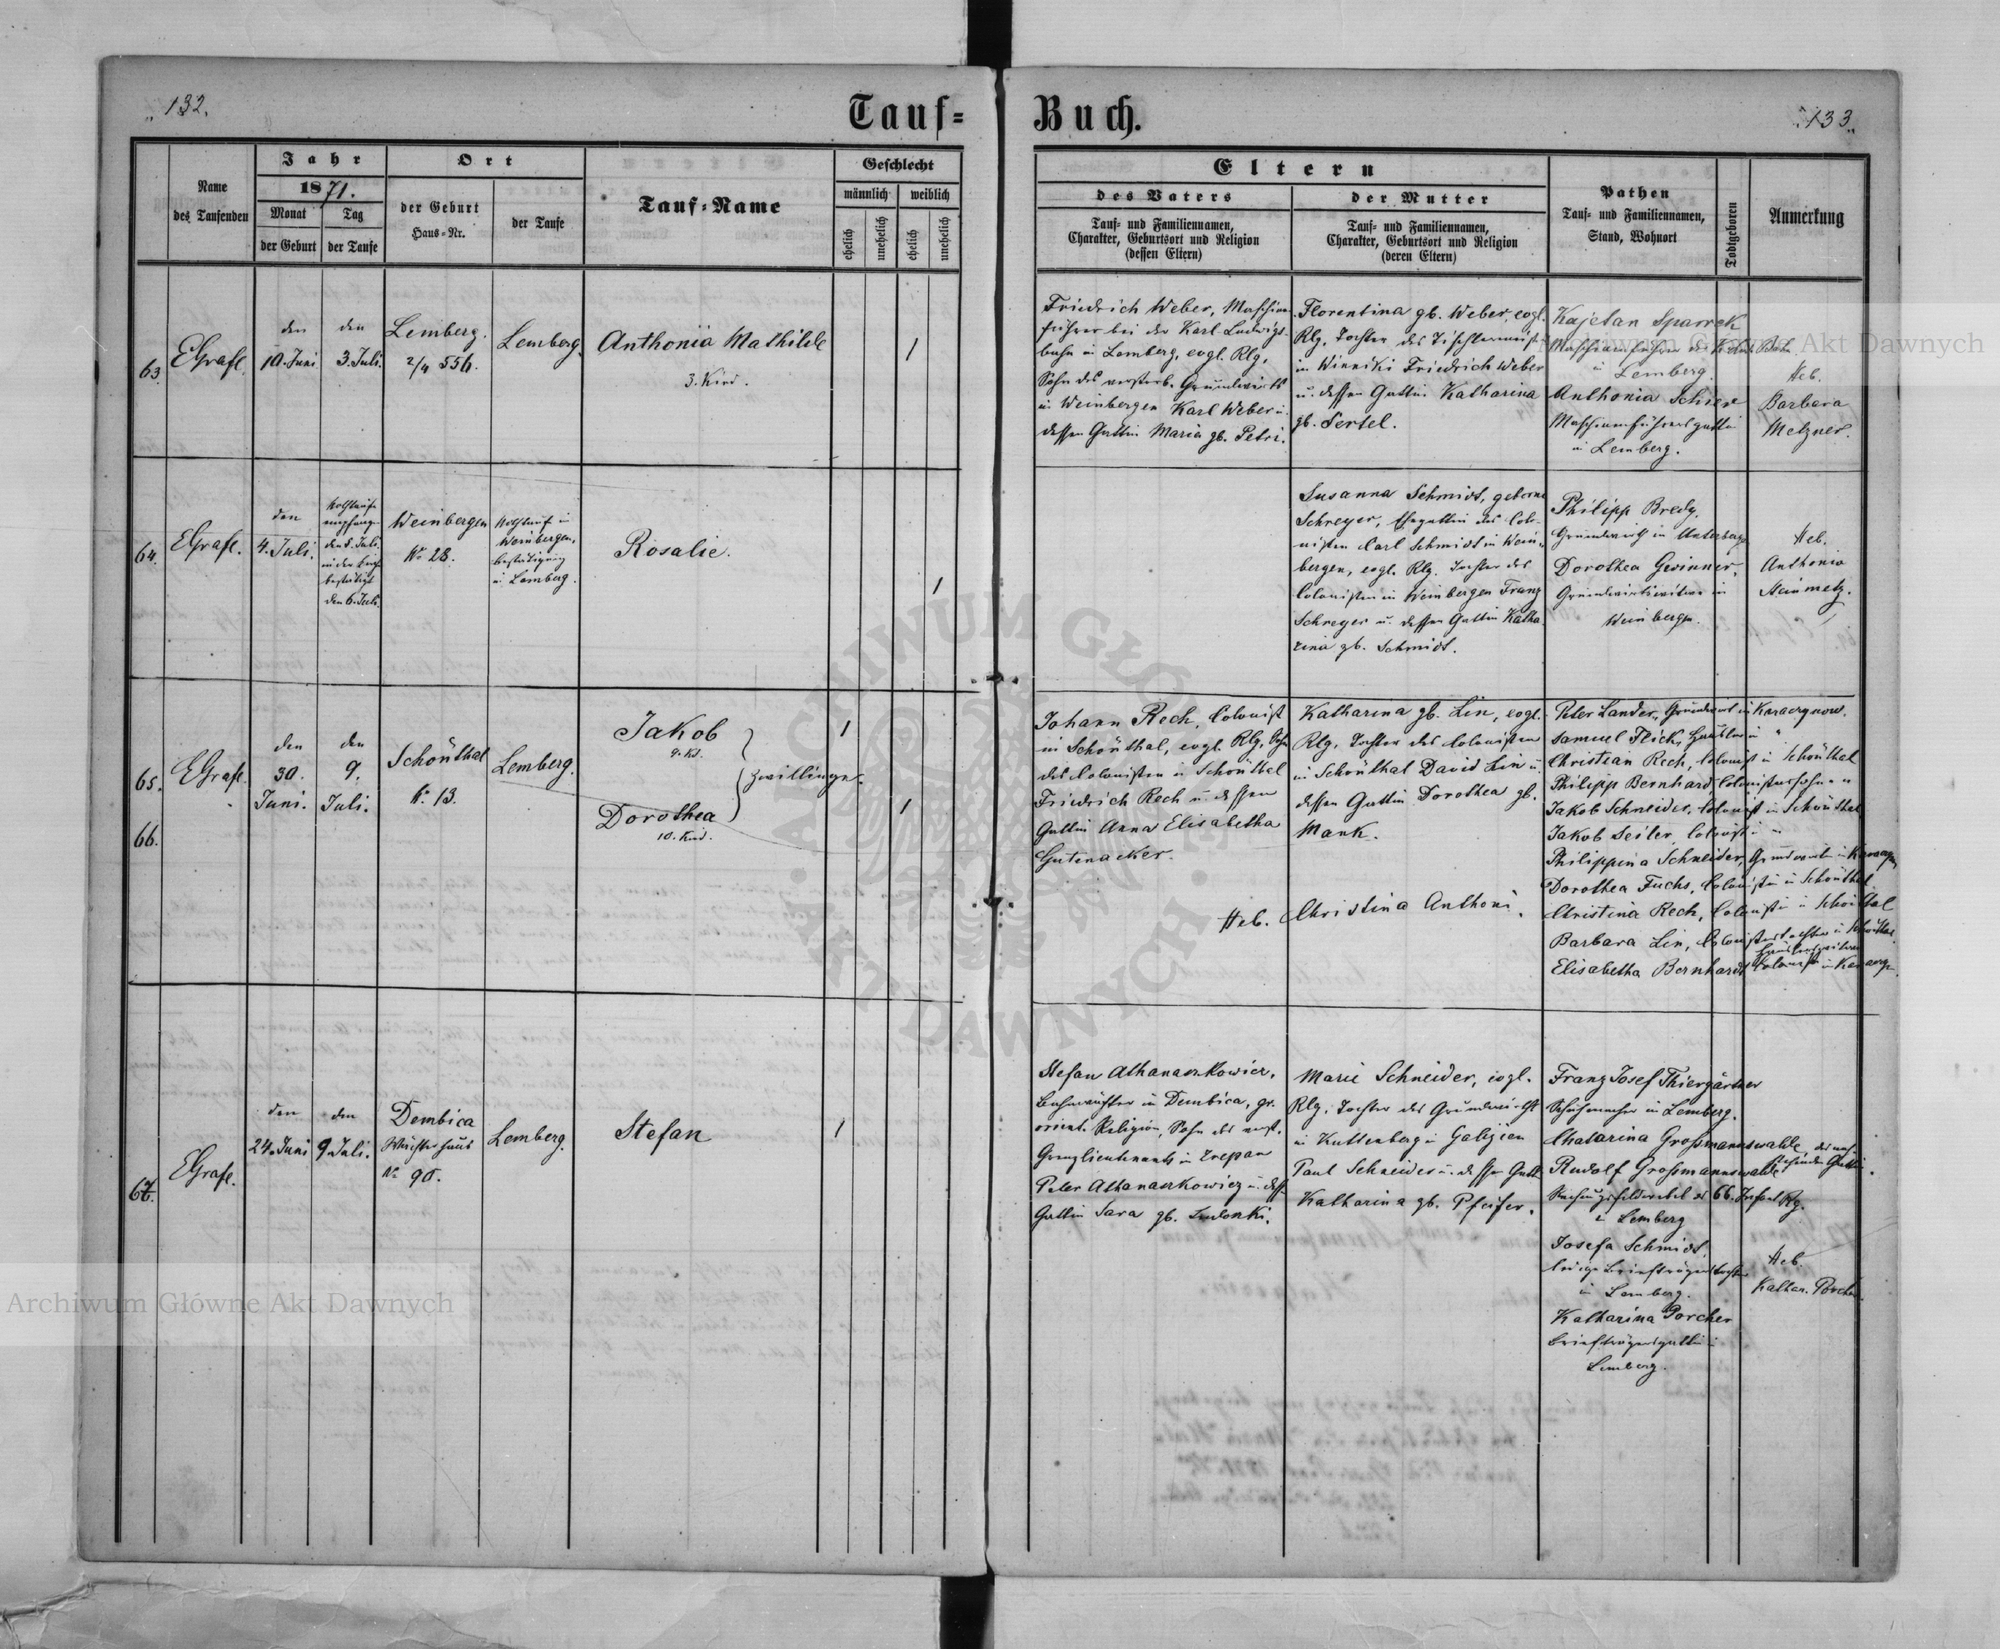 132.
Tauf=
Name
des Taufenden
Jahr
1871.
Monat
der Geburt
Tag
der Taufe
Ort
der Geburt
Haus=Nr.
der Taufe
Tauf=Name
Geschlecht
männlich
weiblich
ehelich
unehelich
ehelich
unehelich
63.
EGrafl
den
10. Juni
den
3. Juli.
Lemberg.
2/4 556.
Lemberg.
Anthonia Mathilde
3. Kind.
1
64.
EGrafl.
den
4. Juli.
Nothtaufe
empfangen
den 5. Juli
in der Kirche
bestätigt
den 6. Juli.
Weinbergen
No 28.
Nothtauf in
Weinbergen,
Bestätigung
in Lemberg.
Rosalie.
1
65.
66.
EGrafl.
den
30.
Juni.
den
9.
Juli.
Schönthal
No 13.
Lemberg.
Jakob
9. Kd.
Dorothea
10. Kind.
Zwillinge.
1
1
67.
EGrafl.
den
24. Juni
den
9. Juli.
Dembica
Wächterhaus
No 90.
Lemberg.
Stefan
1
Buch.
133.
Eltern
des Vaters
Tauf= und Familiennamen,
Charakter, Geburtsort und Religion
(dessen Eltern)
der Mutter
Tauf= und Familiennamen,
Charakter, Geburtsort und Religion
(deren Eltern)
Pathen
Tauf= und Familiennamen,
Stand, Wohnort
Todtgeboren
Anmerkung
Friedrich Weber, Maschin
führer bei der Karl Ludwigs-
bahn in Lemberg, evgl. Rlg.
Sohn des verstorb. Grundwirts
in Weinbergen Karl Weber u.
dessen Gattin Maria gb. Petri.
Florentina gb. Weber, evgl.
Rlg. Tochter des Tischlermeist
in Winniki Friedrich Weber
u. dessen Gattin Katharina
gb. Sertel.
Kajetan Sparrek
Maschinenführer der K. Ludw. Bahn
in Lemberg.
Anthonia Schier
Maschinenführersgattin
in Lemberg.
Heb.
Barbara
Metzner.
Susanna Schmidt, geborne
Schreyer, Ehegattin des Colo-
nisten Carl Schmidt in Wein-
bergen, evgl. Rlg. Tochter des
Colonisten in Weinbergen Franz
Schreyer u. dessen Gattin Katha
rina gb. Schmidt.
Philipp Bredy,
Grundwirth in Unterbergen
Dorothea Gewinner,
Grundwirtswitwe in
Weinbergen.
Heb.
Anthonia
Heinmetz.
Johann Rech, Colonist
in Schönthal, evgl. Rlg. Sohn
des Colonisten in Schönthal
Friedrich Rech u. dessen
Gattin Anna Elisabetha
Gutenacker.
Katharina gb. Lin, evgl.
Rlg. Tochter des Colonisten
in Schönthal David Lin u.
dessen Gattin Dorothea gb.
Mank.
Heb. Christina Anthoni.
Peter Lander, Grundwirt in Karaczynow.
Samuel Flick, Häusler in "
Christian Rech, Colonist in Schönthal
Philipp Bernhard, Colonistensohn " "
Jakob Schneider, Colonist in Schönthal
Jakob Seiler, Colonist in "
Philippina Schneider, Grundwirtin in Karaczyn
Dorothea Fuchs, Colonistin in Schönthal
Christina Rech, Colonistin in Schönthal
Barbara Lin, Colonistentochter in Schönthal
Elisabetha Bernhardt, in Karaczyn.
Stefan Athanaszkowicz,
Bahnwächter in Dembica, gr.
orient. Religion, Sohn des verst.
Grenzlieutenants in Trepan
Peter Athanaszkowicz u. dess
Gattin Sara gb.
Marie Schneider, evgl.
Rlg. Tochter des Grundwirths
in Kuttenberg in Galizien
Paul Schneider u. dessen Gatt
Katharina gb. Pfeifer.
Franz Josef Thiergärtner
Schuhmacher in Lemberg.
Chatarina Großmannswalde, des nach
stehenden Gattin.
Rudolf Großmannswalde
Rechnungsfeldwebel des 66. Infant. Rg.
in Lemberg
Josefa Schmidt,
ledige Briefträgerstochter
in Lemberg.
Katharina Porcher
Briefträgersgattin in
Lemberg.
Heb.
Kathar. Porcher.
Archiwum Główne Akt Dawnych
Archiwum Główne Akt Dawnych
ARCHIWUM GŁÓWNE AKT DAWNYCH